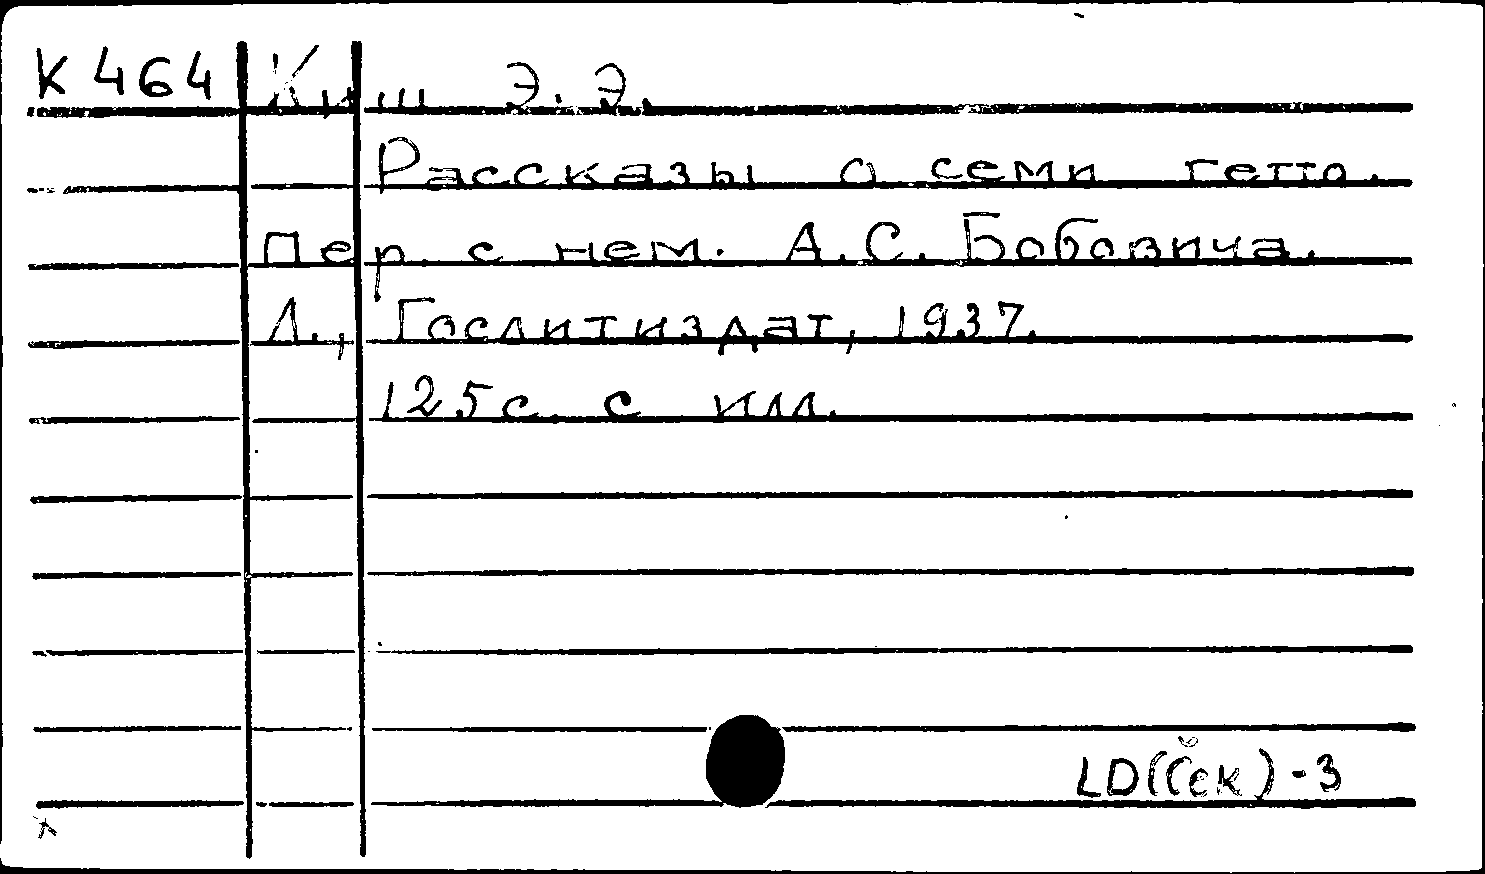 К 464 Киш Э. Э.
Рассказы о семи гетто.
Пер. с нем. А. С. Бобовича.
Л., Гослитиздат, 1937.
125 с. с илл.
LD(Ček)-3